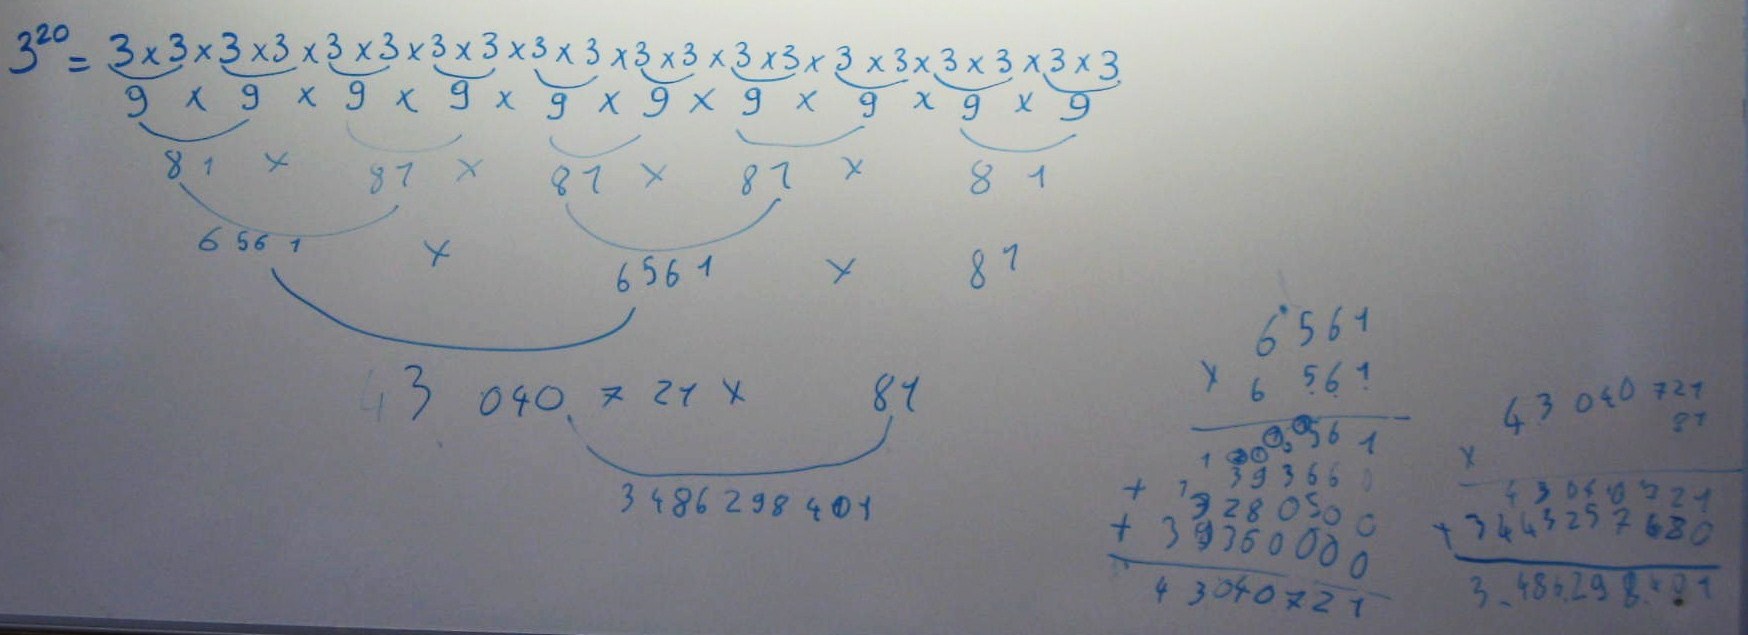 3²⁰ = 3 x 3 x 3 x 3 x 3 x 3 x 3 x 3 x 3 x 3 x 3 x 3 x 3 x 3 x 3 x 3 x 3 x 3 x 3 x 3
9 x 9 x 9 x 9 x 9 x 9 x 9 x 9 x 9 x 9
81 x 81 x 81 x 81 x 81
6561 x 6561 x 81
43 040 721 x 81
3486298401
6561
x 6561
6561
+ 393660
3280500
+ 39360000
43040721
43 040 721
81
x
43040721
+ 3443257680